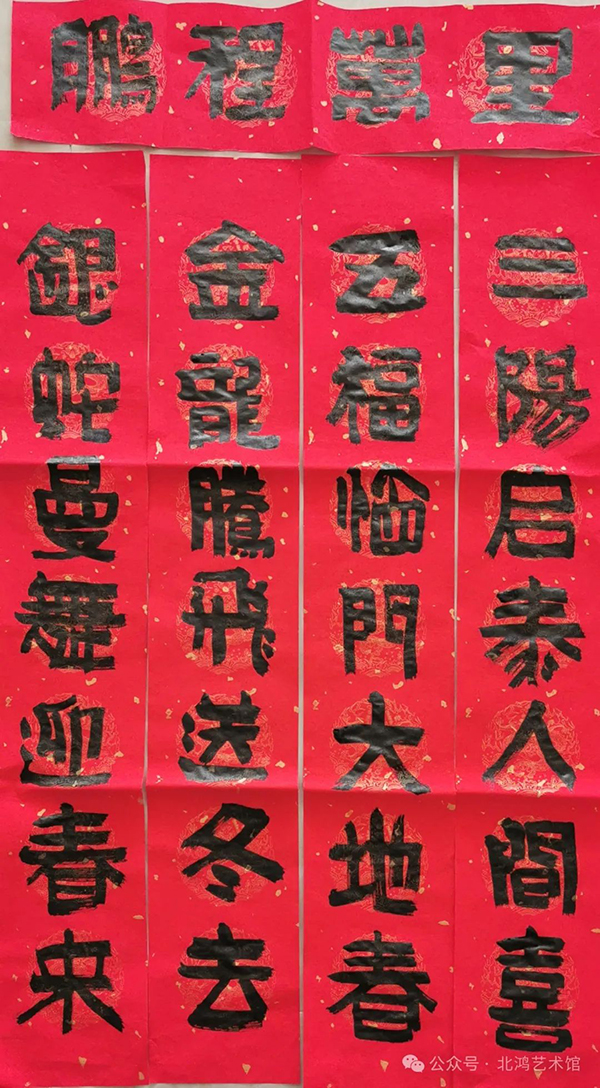 鵬程萬里
三陽启泰人間喜
五福临門大地春
金龍騰飛送冬去
銀蛇曼舞迎春来
公众号 · 北鸿艺术馆